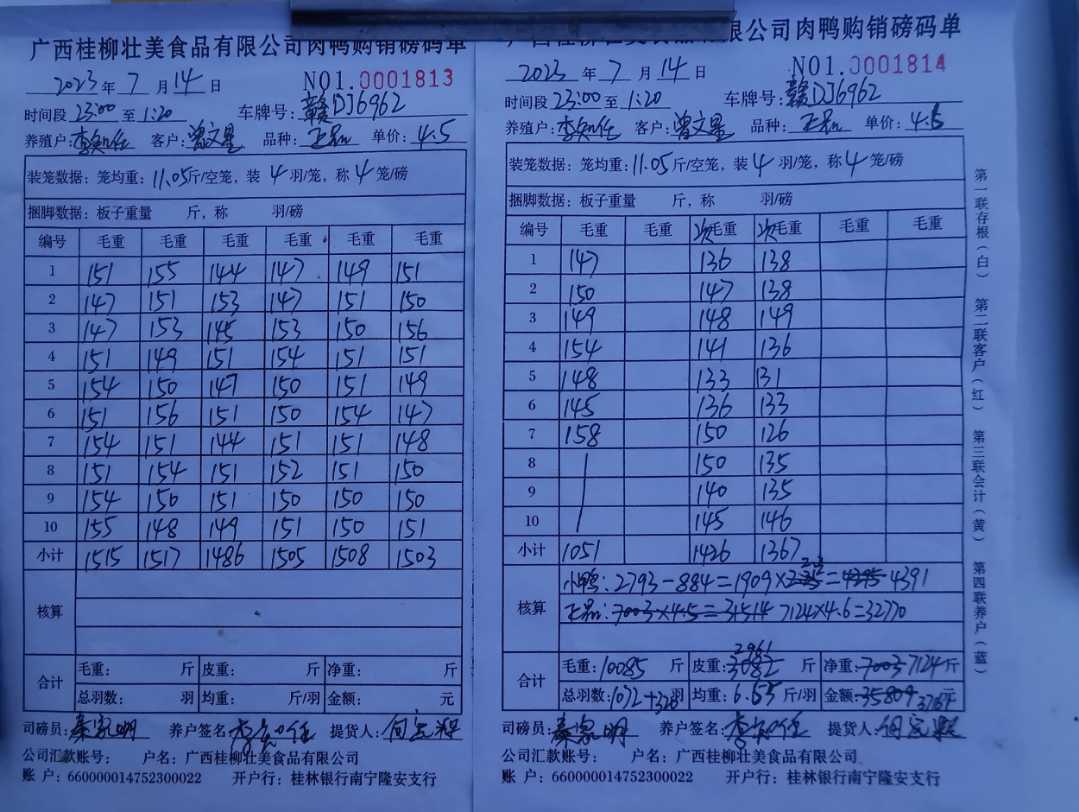 广西桂柳壮美食品有限公司肉鸭购销磅码单
2023年 7月 14日 NO1.0001813
时间段 23:00 至 1:20 车牌号: 赣DJ6962
养殖户: 客户: 曾文星 品种: 正品 单价: 4.5
装笼数据: 笼均重: 11.05斤/空笼, 装 4 羽/笼, 称 4 笼/磅
捆脚数据: 板子重量 斤, 称 羽/磅
编号 毛重 毛重 毛重 毛重 毛重 毛重
1 151 155 144 147 149 151
2 147 151 153 147 151 150
3 147 153 145 153 150 156
4 151 149 151 154 151 151
5 154 150 147 150 151 149
6 151 156 151 150 154 147
7 154 151 144 151 151 148
8 151 154 151 152 151 150
9 154 150 151 150 150 150
10 155 148 149 151 150 151
小计 1515 1517 1486 1505 1508 1503
核算
合计 毛重: 斤 皮重: 斤 净重: 斤
总羽数: 羽 均重: 斤/羽 金额: 元
司磅员: 秦家明 养户签名: 提货人:
公司汇款账号: 户名: 广西桂柳壮美食品有限公司
账 户: 660000014752300022 开户行: 桂林银行南宁隆安支行
广西桂柳壮美食品有限公司肉鸭购销磅码单
2023 年 7 月 14 日 NO1.0001814
时间段 23:00 至 1:20 车牌号: 赣DJ6962
养殖户: 客户: 曾文星 品种: 正品 单价: 4.5
装笼数据: 笼均重: 11.05斤/空笼, 装 4 羽/笼, 称 4 笼/磅
捆脚数据: 板子重量 斤, 称 羽/磅
编号 毛重 毛重 次毛重 次毛重 毛重 毛重
1 147 136 138
2 150 147 138
3 149 148 149
4 154 141 136
5 148 133 131
6 145 136 133
7 158 150 126
8 150 135
9 140 135
10 145 146
小计 1051 1426 1367
小鸭: 2793-884=1909×2.3=4391
核算
正品: 7003×4.5=31514 7124×4.6=32770
合计 毛重: 10085 斤 皮重: 3082 2961 斤 净重: 7003 7124 斤
总羽数: 1072+328羽 均重: 6.65 斤/羽 金额: 35809 元
司磅员: 秦家明 养户签名: 提货人:
公司汇款账号: 户名: 广西桂柳壮美食品有限公司
账 户: 660000014752300022 开户行: 桂林银行南宁隆安支行
第一联存根(白) 第二联客户(红) 第三联会计(黄) 第四联养户(蓝)